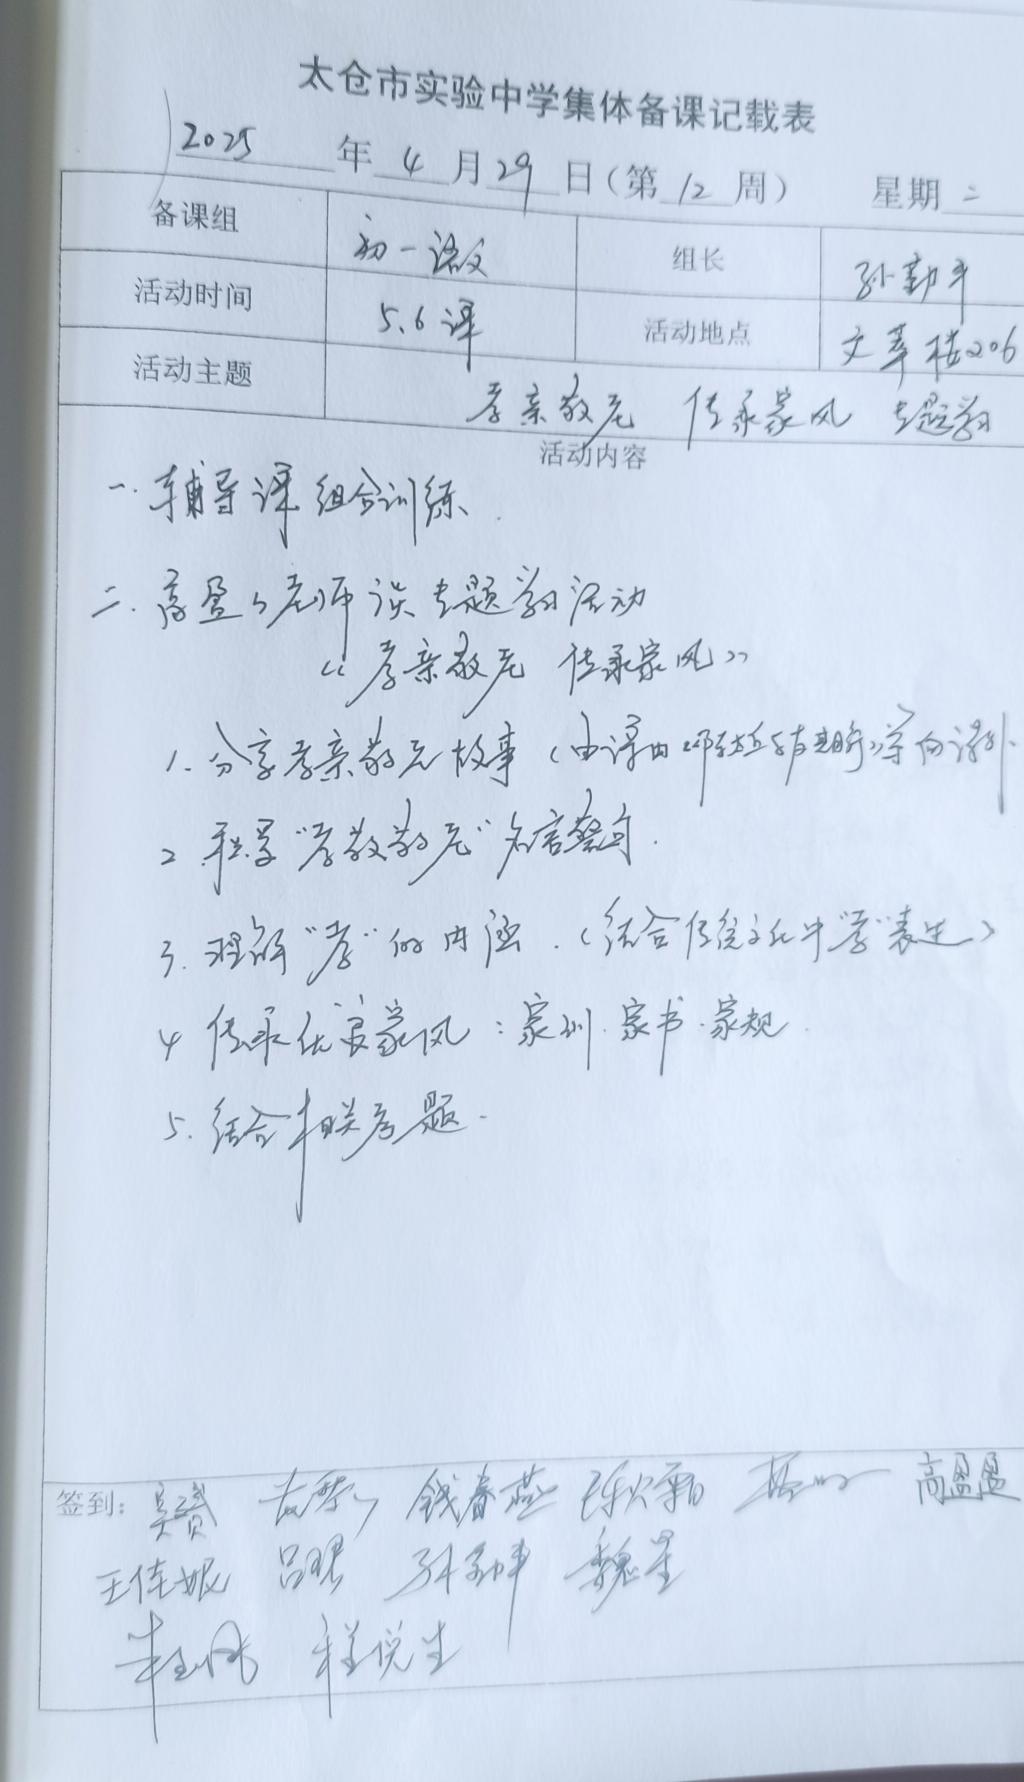 太仓市实验中学集体备课记载表
2025年4月29日(第12周) 星期二
备课组 初一语文 组长 孙勤
活动时间 5.6课 活动地点 文萃楼206
活动主题 孝亲敬老 传承家风 专题学习
活动内容
一.辅导课组合训练.
二.高盈盈老师谈专题学习活动
《孝亲敬老 传承家风》
1.分享孝亲敬老故事(由课内 等向课外
2.积累“孝敬老”名言警句.
3.理解“孝”的内涵.(结合传统文化中“孝”表述)
4 传承优良家风:家训.家书.家规.
5.结合相关考题.
签到: 钱春燕 高盈盈
王佳妮 吕珺 孙勤 魏星
程悦生